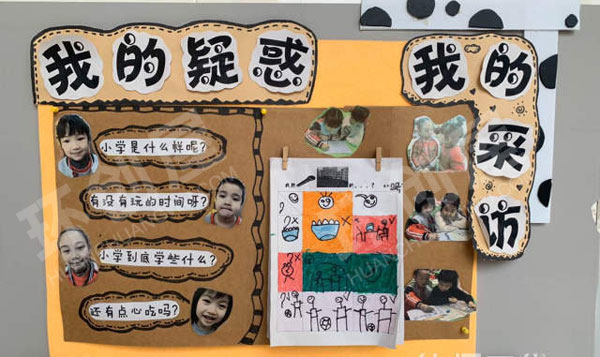 我的疑惑
我的采访
小学是什么样呢?
有没有玩的时间呀?
小学到底学些什么?
还有点心吃吗?